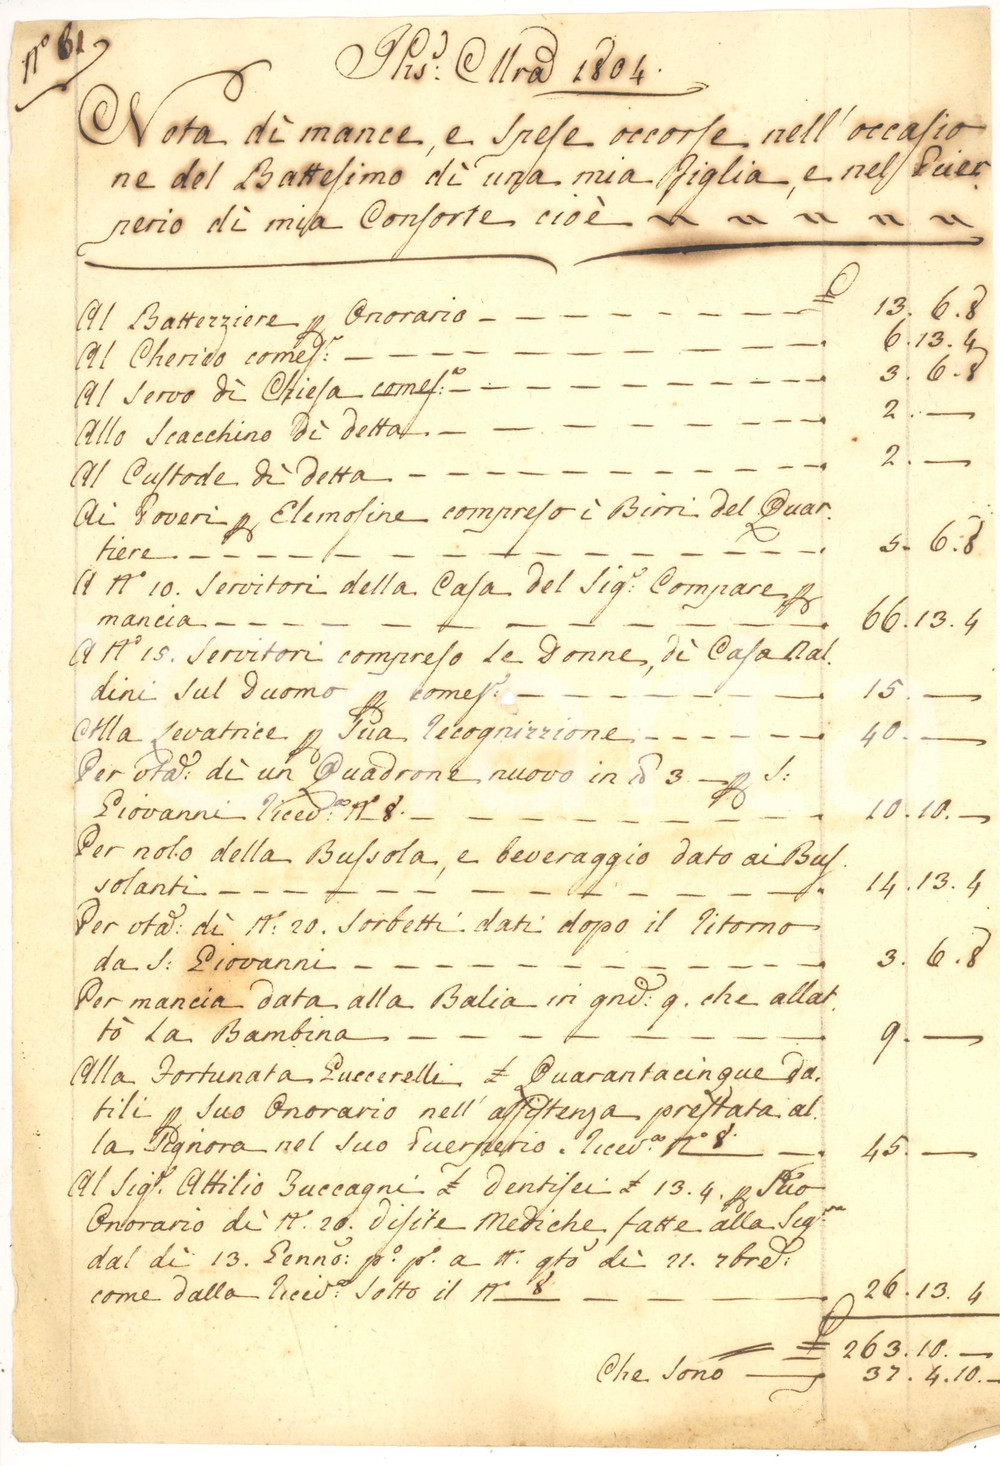 N° 61
Jhs: Mra 1804.
Nota di mance, e spese occorse nell'occasio
ne del Battesimo di una mia figlia, e nel Puer
perio di mia Consorte cioè
Al Battezziere p Onorario £ 13. 6. 8
Al Cherico comes: 6. 13. 4
Al Servo di Chiesa comes:° 3. 6. 8
Allo Scacchino di detta 2. —
Al Custode di detta 2. —
Ai Poveri p Elemosine compreso i Birri del Quar.
tiere 5. 6. 8
A N° 10. Servitori della Casa del Sig: Compare p
mancia 66. 13. 4
A N° 15. Servitori compreso Le Donne, di Casa Nal.
dini sul Duomo p comes: 15. —
Alla Levatrice p Sua Recognizzione 40. —
Per vta: di un Quadrone nuovo in 3 — p S:
Giovanni Ricev: N° 8. 10. 10. —
Per nolo della Bussola, e beveraggio dato ai Bus.
solanti 14. 13. 4
Per vta: di N: 20. Sorbetti dati dopo il ritorno
da S: Giovanni 3. 6. 8
Per mancia data alla Balia in gnd: g. che allat.
tò la Bambina 9. —
Alla Fortunata Puccerelli £ Quarantacinque da.
tili p suo Onorario nell'assistenza prestata al.
la Signora nel suo Puerperio. Ricev: N° 8. 45. —
Al Sig: Attilio Zuccagni £ Ventisei £ 13. 4. p Suo
Onorario di N. 20. Visite Mediche fatte alla Sig:ra
dal di 13. Genno: p° p° a tt° qto di 21. 7bre:
come dalla Ricev: sotto il N 8 26. 13. 4
£ 263. 10. —
Che sono 37. 4. 10. —